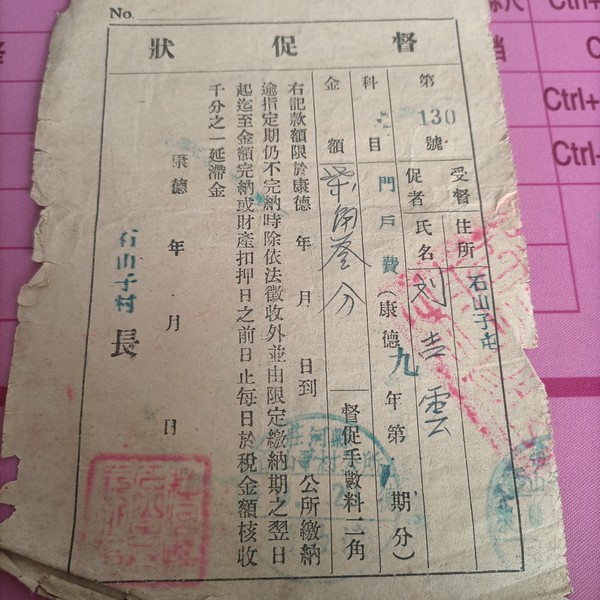 No.
督促狀
第 130 號
受督促者 住所 石山子屯
氏名 刘吉雲
科目 門戶費(康德九年第 期分)
金額 柒角叁分
督促手數料二角
右記款額限於康德 年 月 日到 公所繳納
逾指定期仍不完納時除依法徵收外並由限定繳納期之翌日
起迄至金額完納或財產扣押日之前日止每日於稅金額核收
千分之一延滯金
康德 年 月 日
石山子村長
Ctrl+
Ctrl+
Ctrl+